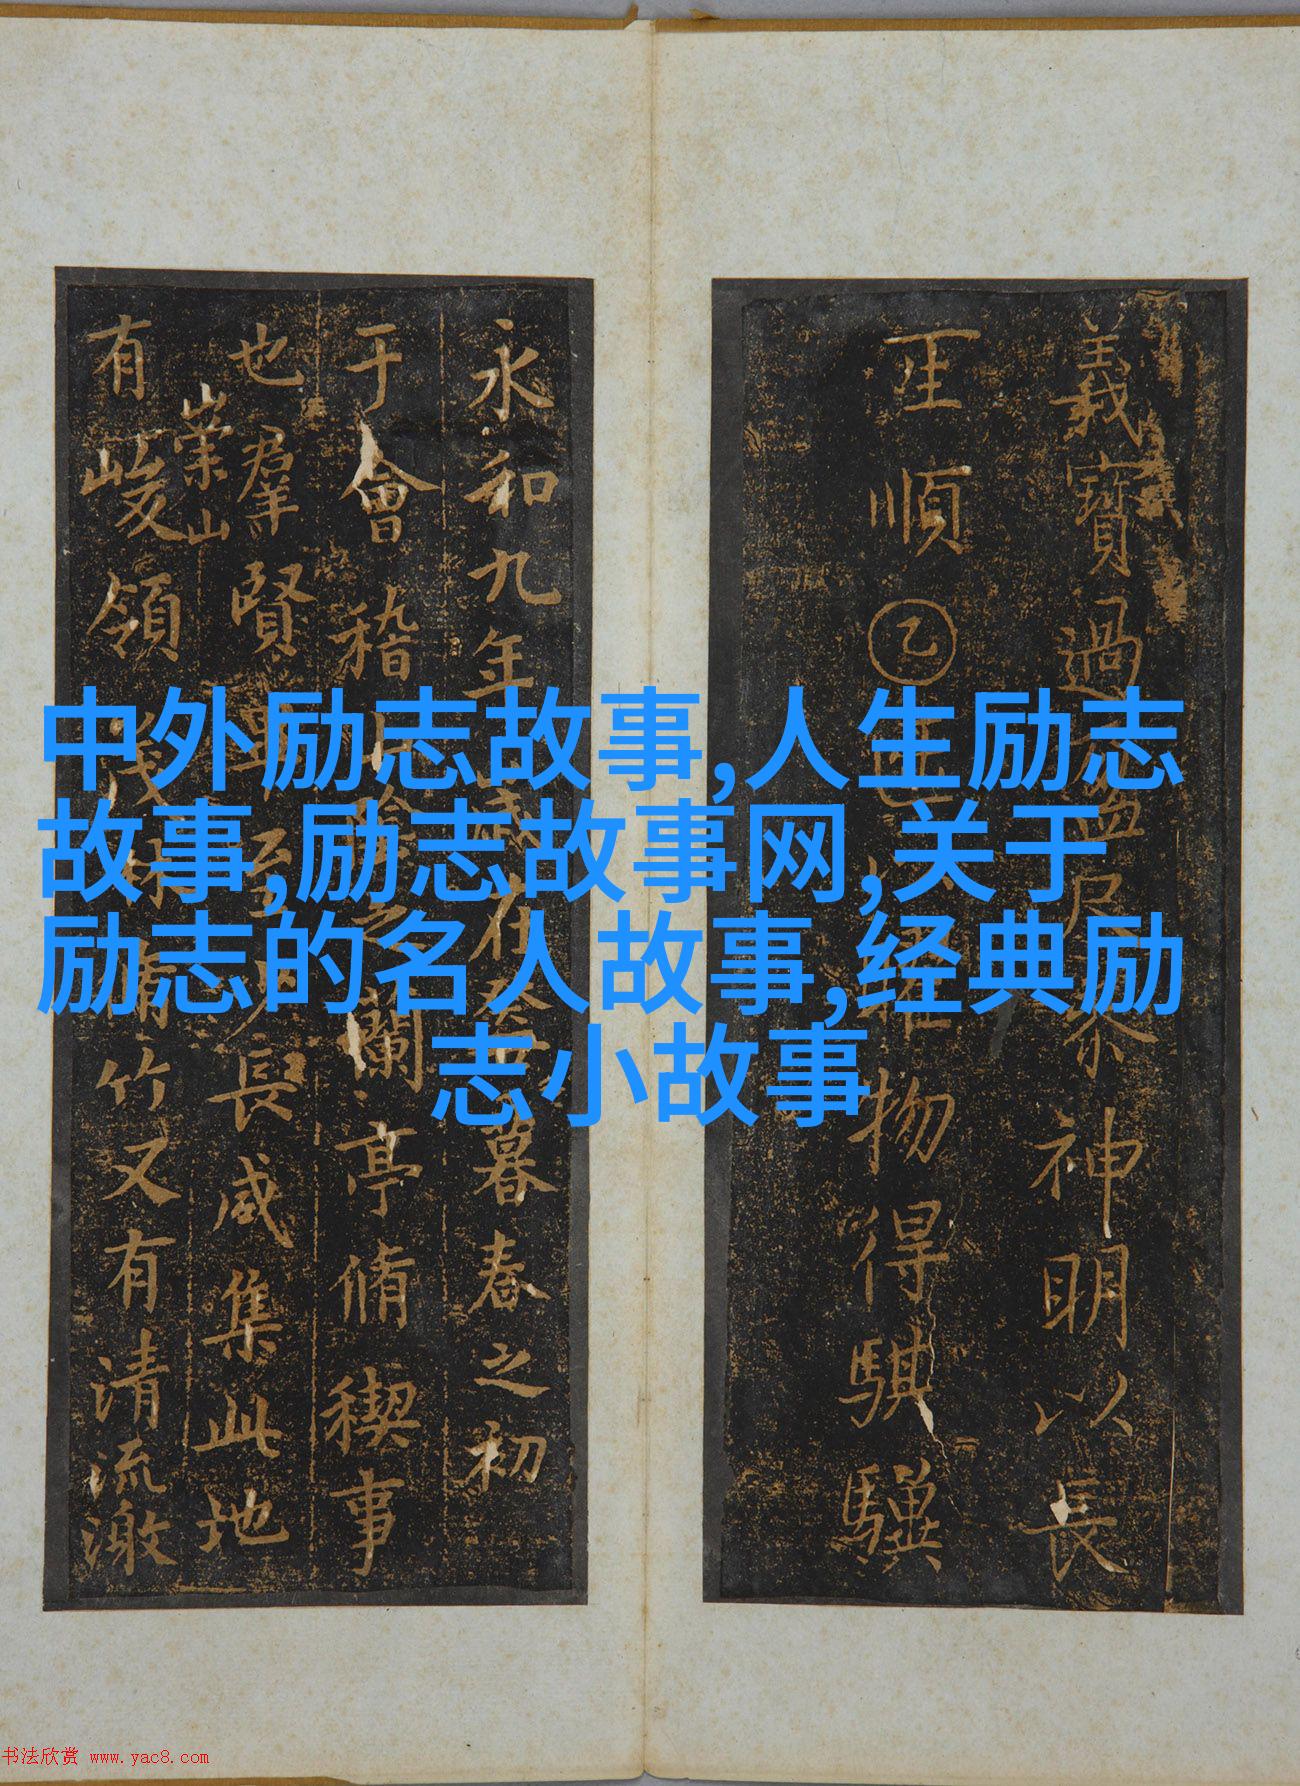 義寶過盈尺 神明以長
匡順乙 物得騏驥
永和九年歲在癸 暮春之初
于會稽山陰之蘭亭脩禊事
也羣賢畢至少長咸集此地
崇山
有峻領茂林脩竹又有清流激
中外励志故事,人生励志
故事,励志故事网,关于
励志的名人故事,经典励
志小故事
书法欣赏 www.yac8.com